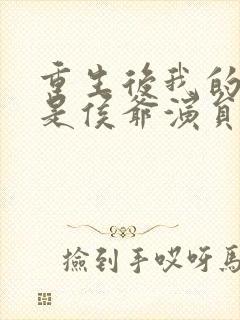 重生後我的
是侯爺演員
撿到手哎呀馬